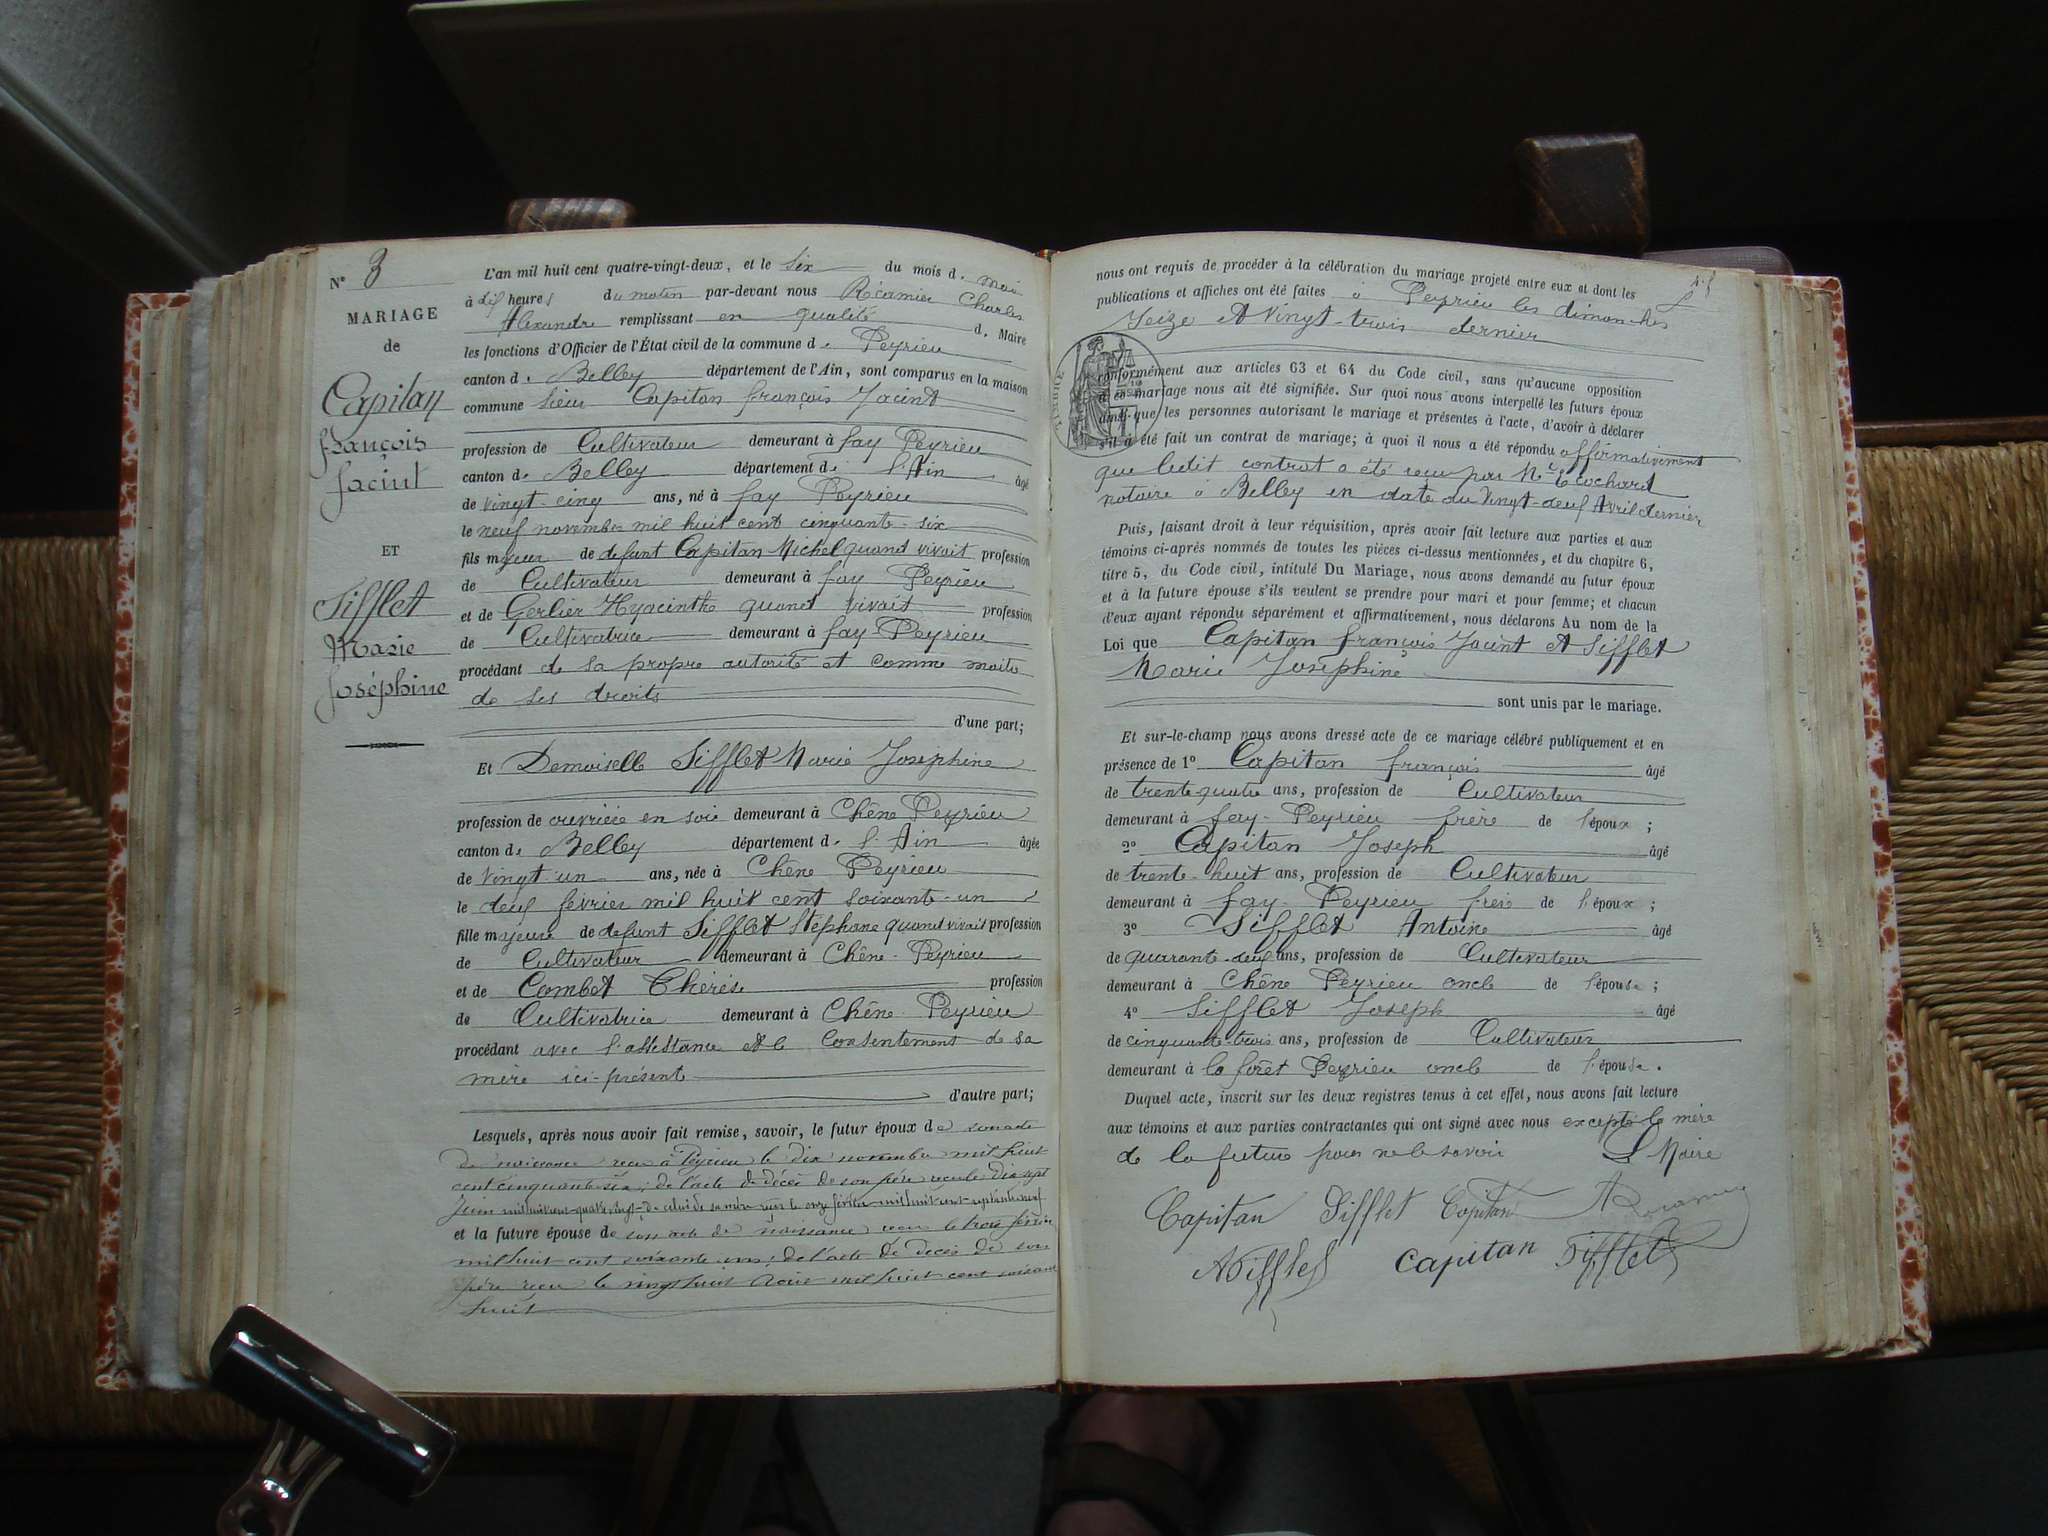 N° 3
MARIAGE
de
Capitan
françois
Jacint
ET
Sifflet
Marie
Joséphine
L'an mil huit cent quatre-vingt-deux, et le Six du mois d. Mai
à dix heures du matin par-devant nous Récamier Charles
Alexandre remplissant en qualité d. Maire
les fonctions d'Officier de l'État civil de la commune d. Peyrieu
canton d. Belley département de l'Ain, sont comparus en la maison
commune Sieur Capitan françois Jacint
profession de Cultivateur demeurant à fay Peyrieu
canton d. Belley département d. l'Ain âgé
de vingt-cinq ans, né à fay Peyrieu
le neuf novembre mil huit cent cinquante-six
fils majeur de defunt Capitan Michel quand vivait profession
de Cultivateur demeurant à fay Peyrieu
et de Gerlier Hyacinthe quand vivait profession
de Cultivatrice demeurant à fay-Peyrieu
procédant de sa propre autorité et comme maitre
de ses droits
d'une part;
Et Demoiselle Sifflet Marie Josephine
profession de ouvrière en soie demeurant à Chêne Peyrieu
canton d. Belley département d. l'Ain âgée
de vingt-un ans, née à Chêne Peyrieu
le deux février mil huit cent soixante-un
fille majeure de defunt Sifflet Stephane quand vivait profession
de Cultivateur demeurant à Chêne-Peyrieu
et de Combet Thérèse profession
de Cultivatrice demeurant à Chêne-Peyrieu
procédant avec l'assistance et le consentement de sa
mère ici-présente
d'autre part;
Lesquels, après nous avoir fait remise, savoir, le futur époux de son acte
de naissance recu à Peyrieu le dix novembre mil huit
cent cinquante six; de l'acte de décès de son père recu le dix sept
Juin mil huit cent quatre vingt de celui de sa mère recu le onze février mil huit cent septante neuf
et la future épouse de son acte de naissance recu le trois février
mil huit cent soixante un; de l'acte de décès de son
père recu le vingt huit Aout mil huit cent soixante
huit
nous ont requis de procéder à la célébration du mariage projeté entre eux et dont les
publications et affiches ont été faites à Peyrieu les dimanches
Seize et Vingt-trois dernier
TIMBRE
conformément aux articles 63 et 64 du Code civil, sans qu'aucune opposition
à ce mariage nous ait été signifiée. Sur quoi nous avons interpellé les futurs époux
ainsi que les personnes autorisant le mariage et présentes à l'acte, d'avoir à déclarer
s'il a été fait un contrat de mariage; à quoi il nous a été répondu affirmativement
que ledit contrat a été recu par Me Cochard
notaire à Belley en date du Vingt-deux Avril dernier
Puis, faisant droit à leur réquisition, après avoir fait lecture aux parties et aux
témoins ci-après nommés de toutes les pièces ci-dessus mentionnées, et du chapitre 6,
titre 5, du Code civil, intitulé Du Mariage, nous avons demandé au futur époux
et à la future épouse s'ils veulent se prendre pour mari et pour femme; et chacun
d'eux ayant répondu séparément et affirmativement, nous déclarons Au nom de la
Loi que Capitan françois Jacint et Sifflet
Marie Josephine
sont unis par le mariage.
Et sur-le-champ nous avons dressé acte de ce mariage célébré publiquement et en
présence de 1° Capitan françois âgé
de trente quatre ans, profession de Cultivateur
demeurant à fay-Peyrieu frère de l'époux;
2° Capitan Joseph âgé
de trente-huit ans, profession de Cultivateur
demeurant à fay-Peyrieu frère de l'époux;
3° Sifflet Antoine âgé
de quarante-deux ans, profession de Cultivateur
demeurant à Chêne Peyrieu oncle de l'épouse;
4° Sifflet Joseph âgé
de cinquante-trois ans, profession de Cultivateur
demeurant à la forêt Peyrieu oncle de l'épouse.
Duquel acte, inscrit sur les deux registres tenus à cet effet, nous avons fait lecture
aux témoins et aux parties contractantes qui ont signé avec nous excepté la mère
de la future pour ne le savoir Le Maire
Capitan Sifflet Capitan A Récamier
A Sifflet Capitan Sifflet